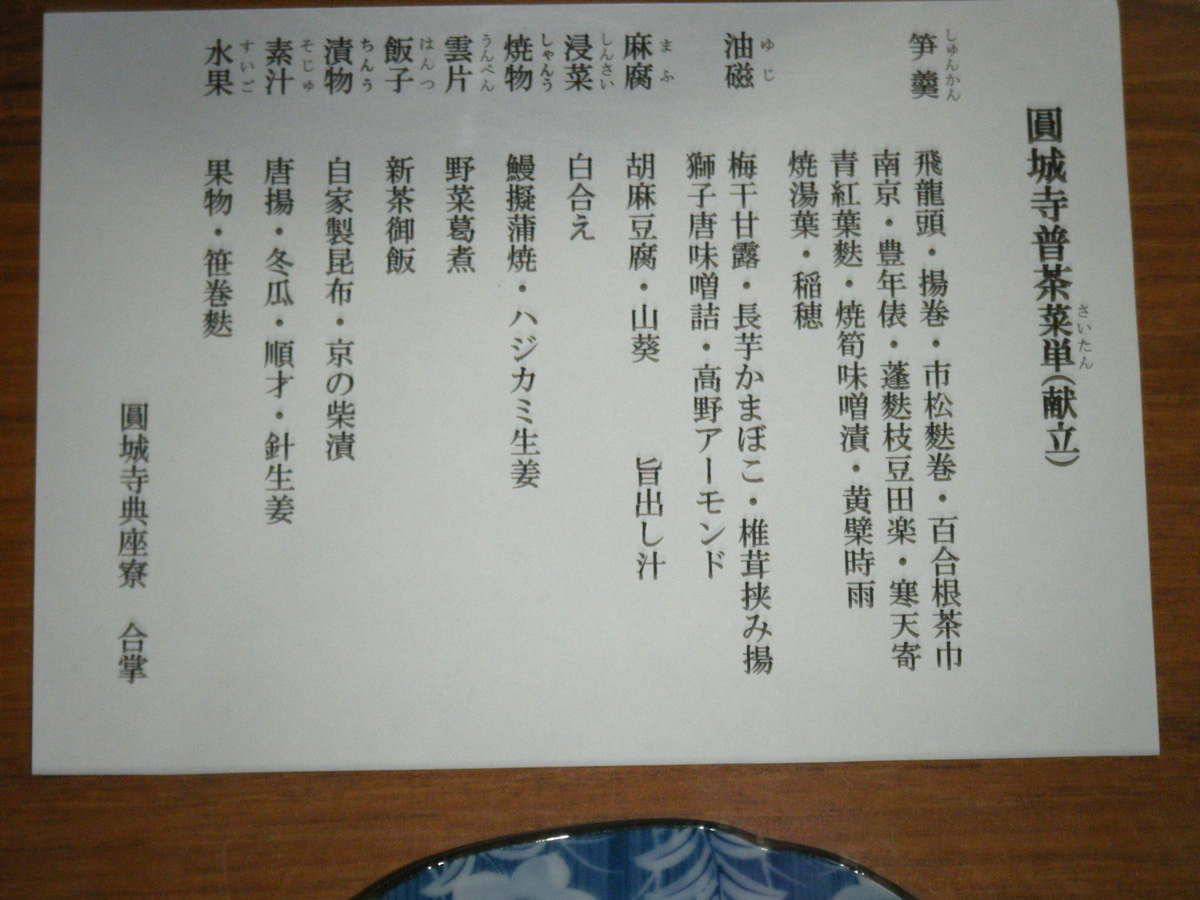 圓城寺普茶菜単(献立)
さいたん
笋羹
しゅんかん
飛龍頭・揚巻・市松麩巻・百合根茶巾
南京・豊年俵・蓬麩枝豆田楽・寒天寄
青紅葉麩・焼筍味噌漬・黄檗時雨
焼湯葉・稲穂
油磁
ゆじ
梅干甘露・長芋かまぼこ・椎茸挟み揚
獅子唐味噌詰・高野アーモンド
麻腐
まふ
胡麻豆腐・山葵 旨出し汁
浸菜
しんさい
白合え
焼物
しゃんう
鰻擬蒲焼・ハジカミ生姜
雲片
うんぺん
野菜葛煮
飯子
はんつ
新茶御飯
漬物
ちんう
自家製昆布・京の柴漬
素汁
そじゅ
唐揚・冬瓜・順才・針生姜
水果
すいご
果物・笹巻麩
圓城寺典座寮 合掌